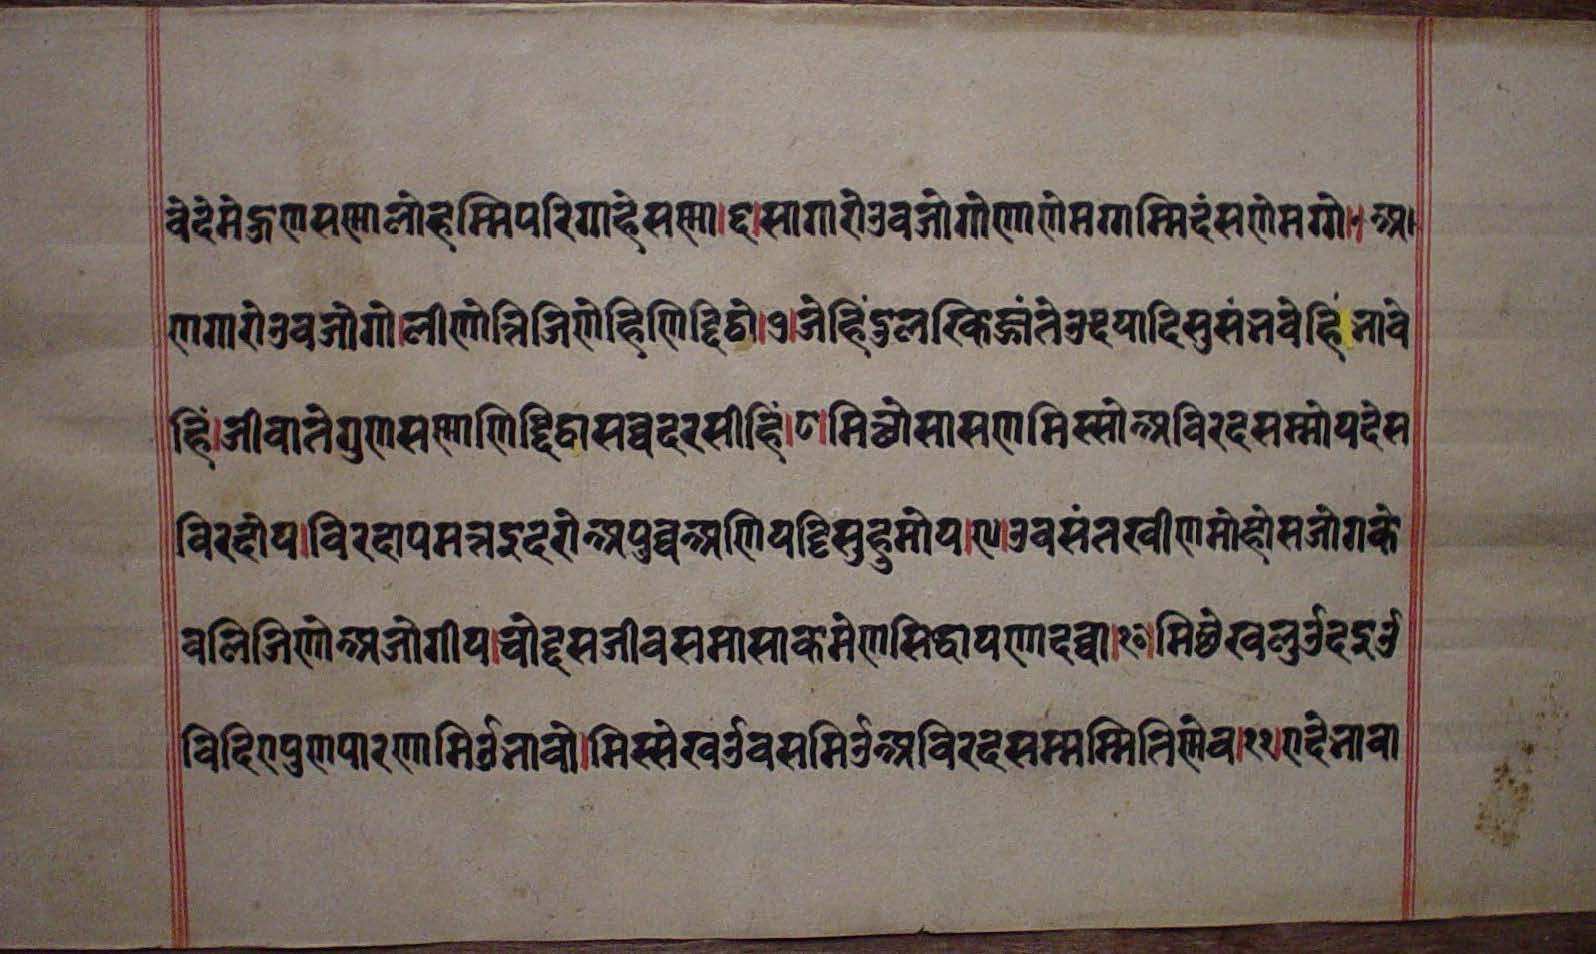 वेदेमेहुणसण्णालोहम्मिपरिगाहेसण्णा।६।सागारोउवजोगोणाणेमगाम्मिदंसणेमगो।१अ।
णगारोउवजोगो।लीणोत्तिजिणेहिणिद्दिठो।७।जेहिंदुलरकिज्जंतेउदयादिसुसंभवेहिं।भावे
हिं।जीवातेगुणसण्णाणिद्दिठासव्वदरसीहिं।८।मिच्छोसासणमिस्सोअविरदसम्मोयदेस
विरदोय।विरदापमत्तइदरोअपुव्वअणियट्टिसुहुमोय।९।उवसंतखीणमोहोसजोगके
वलिजिणोअजोगीय।चोद्दसजीवसमासाकमेणसिद्धायणादव्वा।१०।मिछेखलुओदइओ
विदिएपुणपारणामिओभावो।मिस्सेखओवसमिओअविरदसम्मम्मितिण्णेव।११।एदेभावा